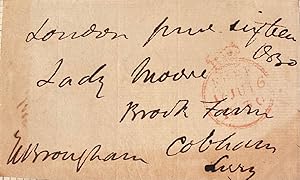 London June sixteen
1830
Lady Moore
Brook Farm
Cobham
HBrougham
Surry